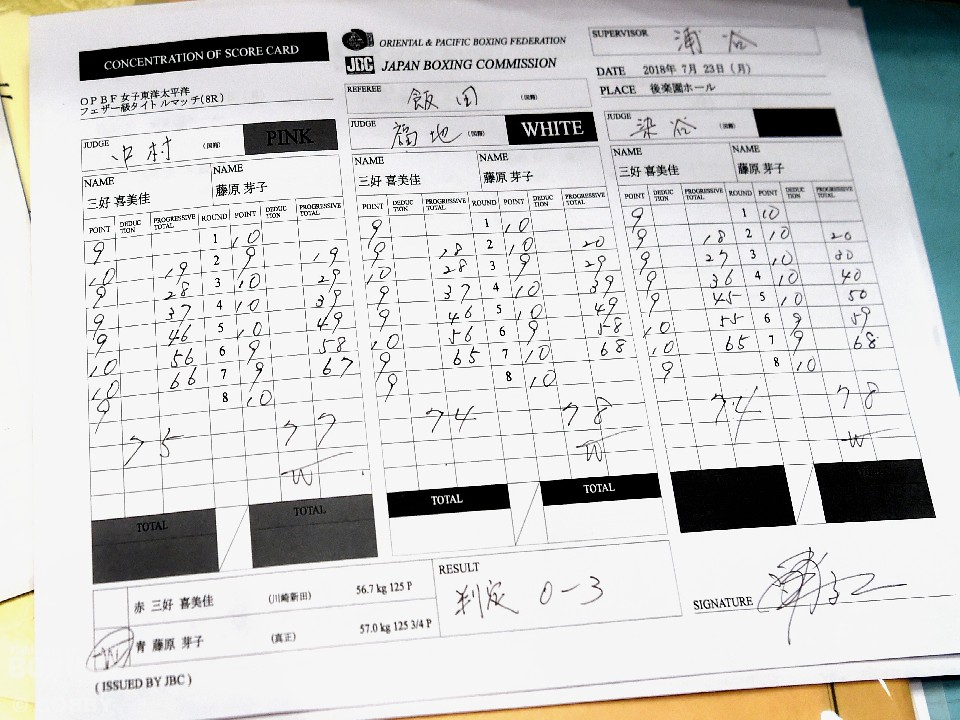 CONCENTRATION OF SCORE CARD
ORIENTAL & PACIFIC BOXING FEDERATION
JBC JAPAN BOXING COMMISSION
SUPERVISOR 浦谷
DATE 2018年 7月 23日 (月)
PLACE 後楽園ホール
OPBF女子東洋太平洋
フェザー級タイトルマッチ(8R)
REFEREE 飯田 (国籍)
JUDGE 中村 (国籍) PINK
JUDGE 福地 (国籍) WHITE
JUDGE 染谷 (国籍)
NAME NAME NAME NAME NAME NAME
三好 喜美佳 藤原 芽子 三好 喜美佳 藤原 芽子 三好 喜美佳 藤原 芽子
POINT DEDUCTION PROGRESSIVE TOTAL ROUND POINT DEDUCTION PROGRESSIVE TOTAL
9 1 10
9 10 19 2 9 19
9 28 3 10 29
9 37 4 10 39
9 46 5 10 49
10 56 6 9 58
10 66 7 9 67
9 8 10
75 77
W
TOTAL TOTAL
POINT DEDUCTION PROGRESSIVE TOTAL ROUND POINT DEDUCTION PROGRESSIVE TOTAL
9 1 10
9 18 2 10 20
10 28 3 9 29
9 37 4 10 39
9 46 5 10 49
10 56 6 9 58
9 65 7 10 68
9 8 10
74 78
W
TOTAL TOTAL
POINT DEDUCTION PROGRESSIVE TOTAL ROUND POINT DEDUCTION PROGRESSIVE TOTAL
9 1 10
9 18 2 10 20
9 27 3 10 30
9 36 4 10 40
9 45 5 10 50
10 55 6 9 59
10 65 7 9 68
9 8 10
74 78
W
赤 三好 喜美佳 (川崎新田) 56.7 kg 125 P
W 青 藤原 芽子 (真正) 57.0 kg 125 3/4 P
RESULT
判定 0-3
SIGNATURE
( ISSUED BY JBC )